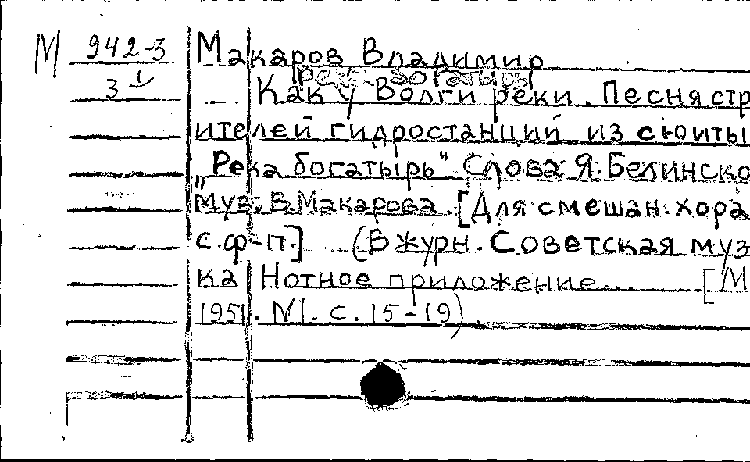 М 942-3 Макаров Владимир
3 Как у Волги реки. Песня стр
ителей гидростанций из сюиты
"Река богатырь" Слова Я. Белинско
муз. В. Макарова [Для смешан. хора
с. ф-п.] (В журн. Советская муз
ка Нотное приложение... [М
1951. №1. с. 15-19)